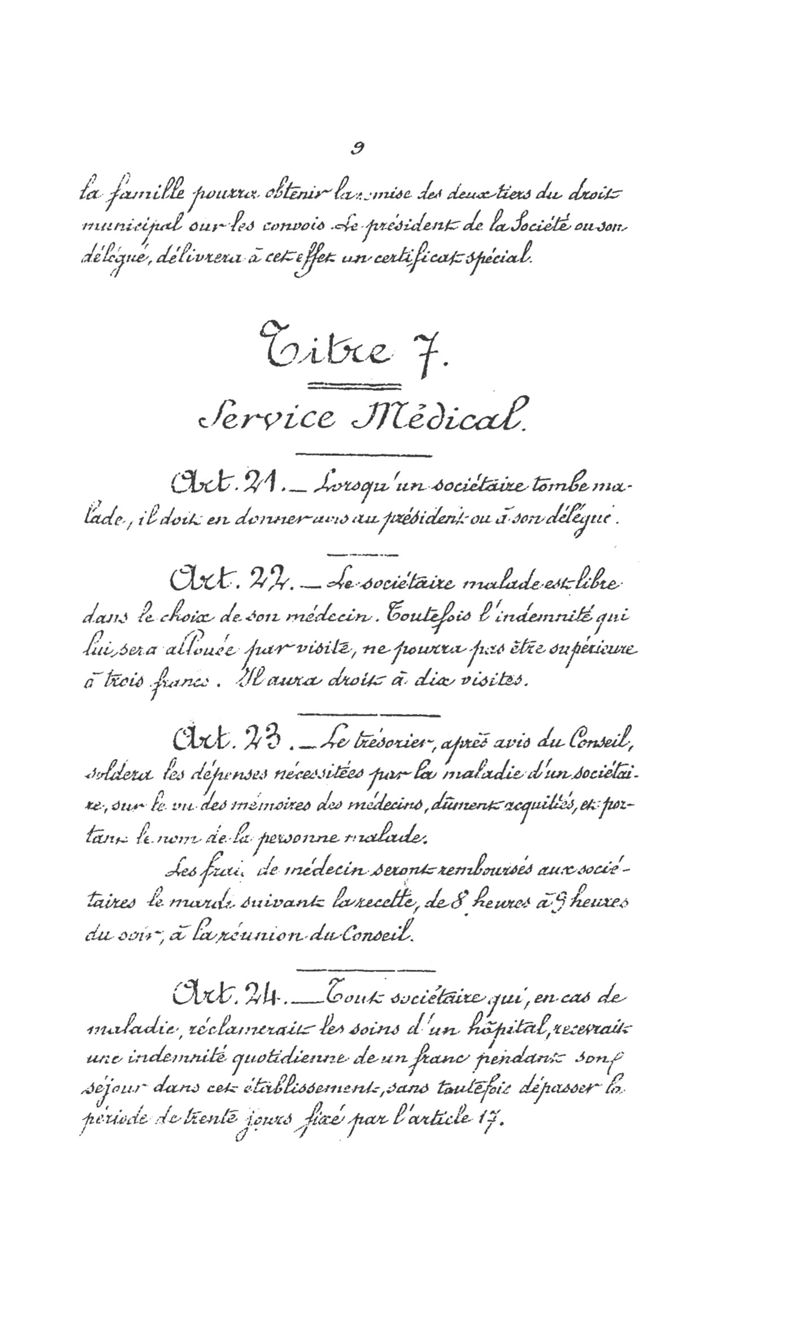 9
la famille pourra obtenir la remise des deux tiers du droit
municipal sur les convois. Le président de la Société ou son
délégué, délivrera à cet effet un certificat spécial.
Titre 7.
Service Médical.
Art. 21. — Lorsqu'un sociétaire tombe ma-
lade, il doit en donner avis au président ou à son délégué.
Art. 22. — Le sociétaire malade est libre
dans le choix de son médecin. Toutefois l'indemnité qui
lui sera allouée par visite, ne pourra pas être supérieure
à trois francs. Il aura droit à dix visites.
Art. 23. — Le trésorier, après avis du Conseil,
soldera les dépenses nécessitées par la maladie d'un sociétai-
re, sur le vu des mémoires des médecins, dûment acquittés, et por-
tant le nom de la personne malade.
Les frais de médecin seront remboursés aux socié-
taires le mardi suivant la recette, de 8 heures à 9 heures
du soir, à la réunion du Conseil.
Art. 24. — Tout sociétaire qui, en cas de
maladie, réclamerait les soins d'un hôpital, recevrait
une indemnité quotidienne de un franc pendant son
séjour dans cet établissement, sans toutefois dépasser la
période de trente jours fixé par l'article 17.